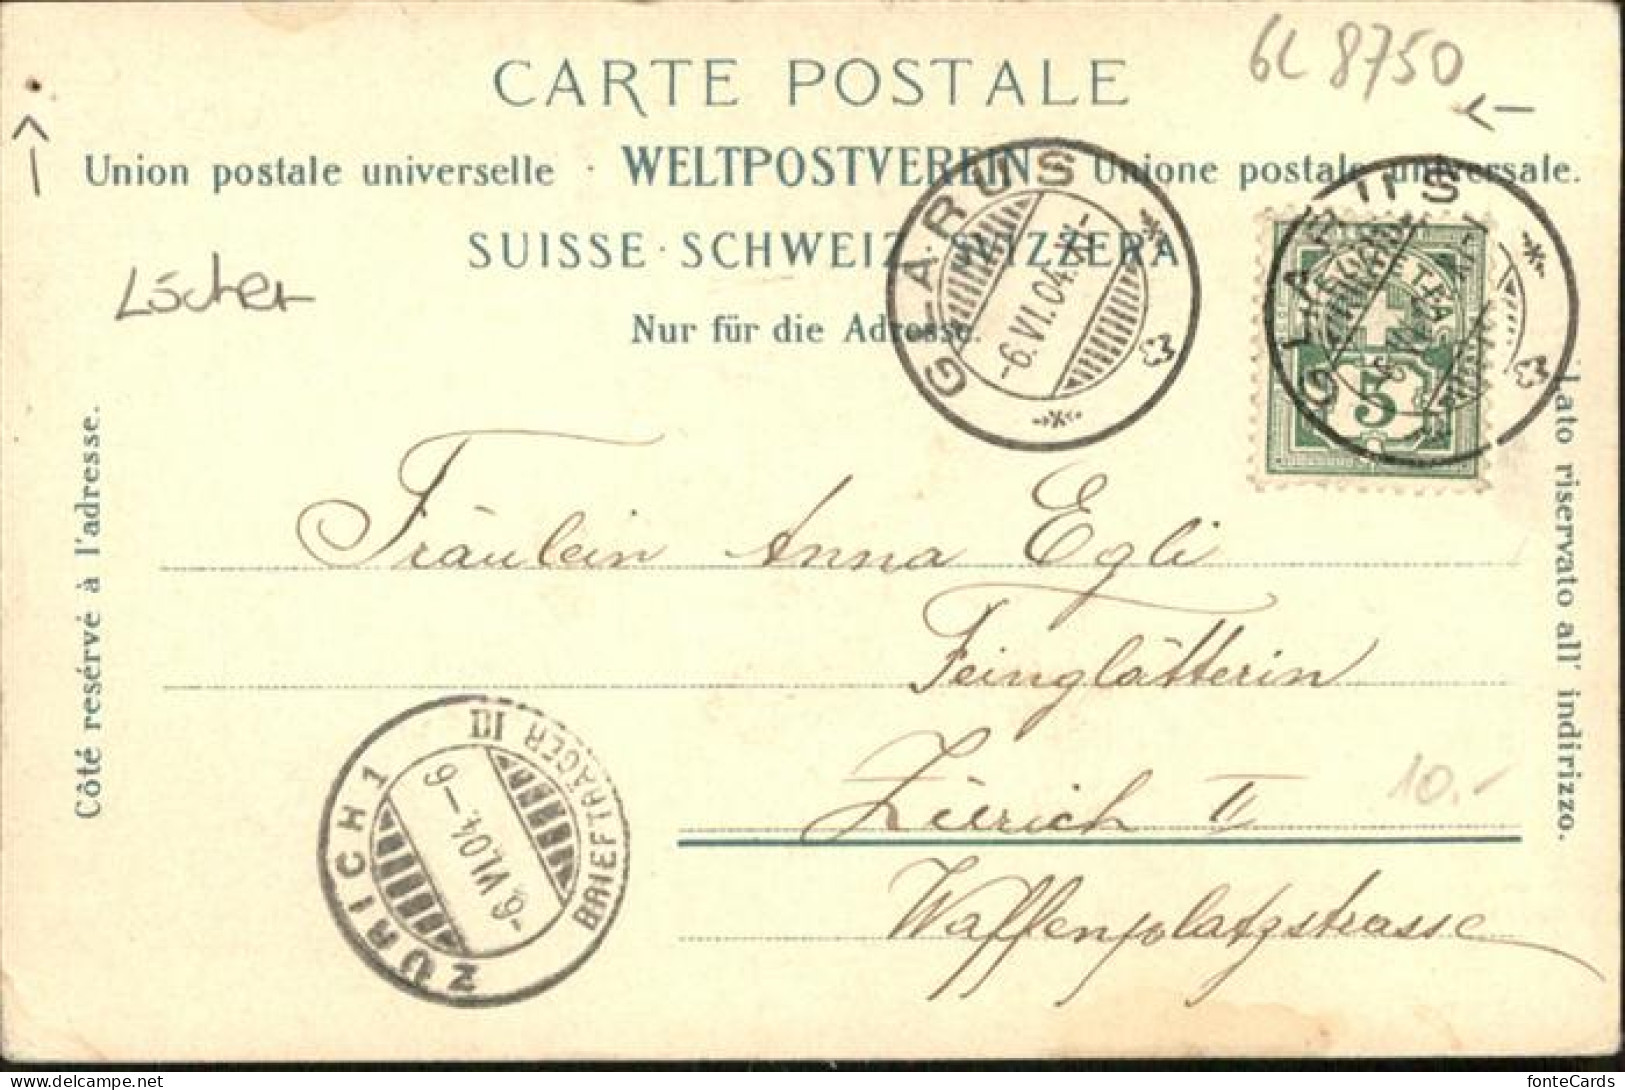 GL 8750
CARTE POSTALE
Union postale universelle · WELTPOSTVEREIN · Unione postale universale.
SUISSE · SCHWEIZ · SVIZZERA
Nur für die Adresse.
Löcher
GLARUS
-6.VI.04.XI-
GLARUS
5
Côté resérvé à l'adresse.
Lato riservato all' indirizzo.
Fräulein Anna Egli
Feinglätterin
Zürich II
Waffenplatzstrasse
10.-
ZÜRICH 1
BRIEFTRÄGER
-6.VI.04.-9
fonteCards